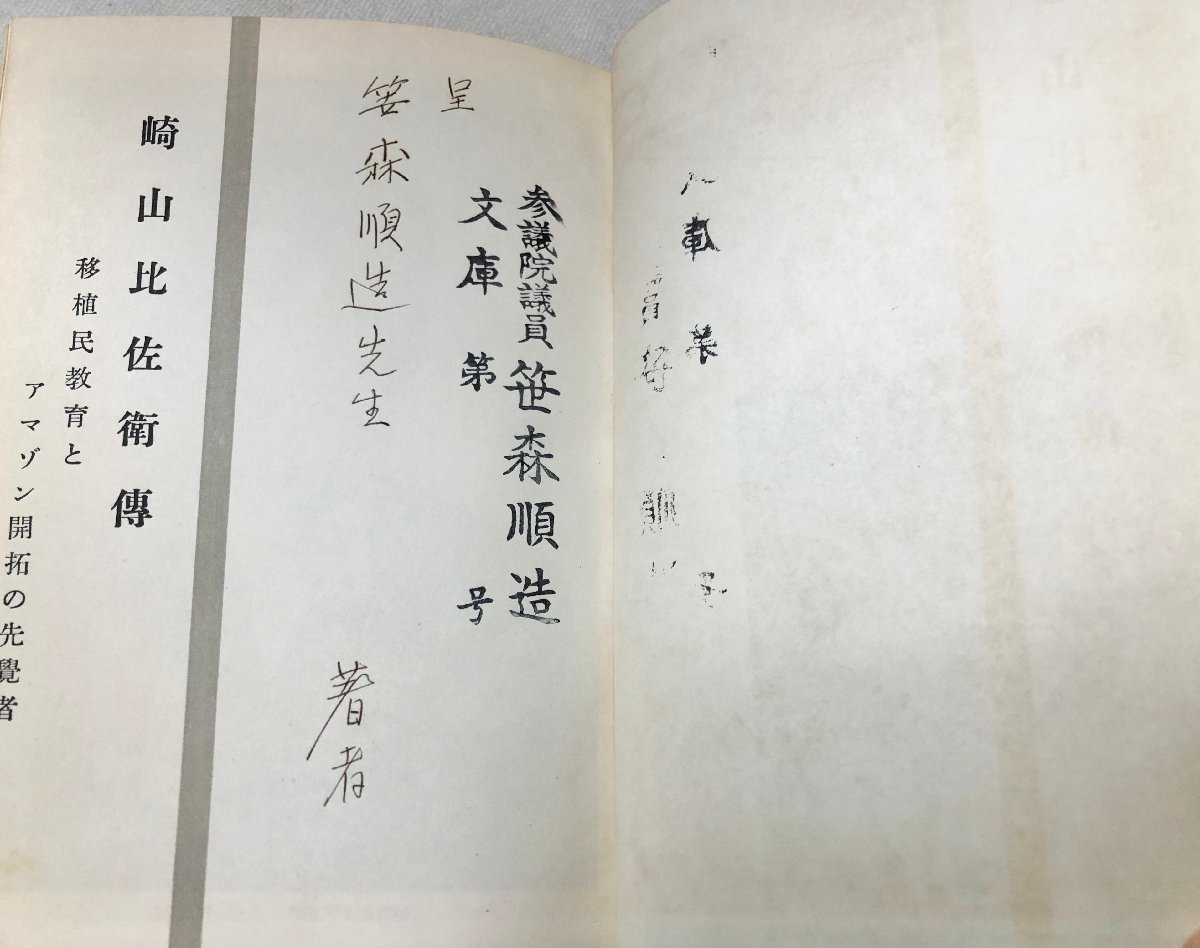 参議院議員 笹森順造
文庫第 号
呈
笹森順造先生
著者
崎山比佐衛傳
移植民教育と
アマゾン開拓の先覺者